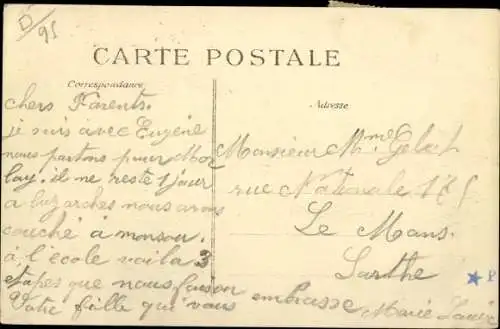 D/95
CARTE POSTALE
Correspondance
Adresse
chers Parents.
je suis avec Eugène
nous partons pour Mor
lay. il ne reste 1 jour
a luzarches nous avons
couché à monsou.
à l'école voila 3
etapes que nous faison
Votre fille qui vous embrasse Marie Louise
Monsieur Mme
rue Nationale 175
Le Mans.
Sarthe